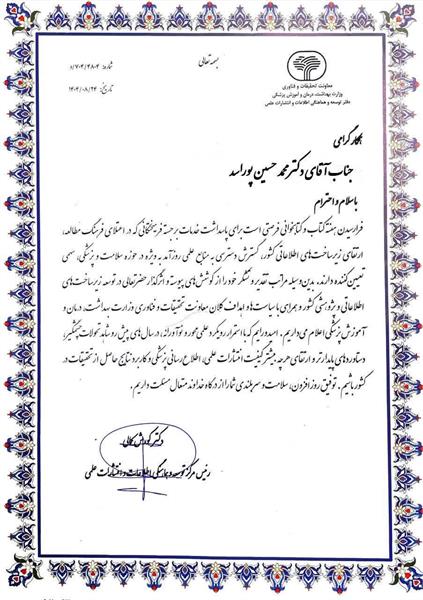 بسمه تعالی
معاونت تحقیقات و فناوری
وزارت بهداشت، درمان و آموزش پزشکی
دفتر توسعه و هماهنگی اطلاعات و انتشارات علمی
شماره: ۸/۷۰۴/۴۸۰۴
تاریخ: ۱۴۰۴/۰۸/۲۴
همکار گرامی
جناب آقای دکتر محمد حسین پوراسد
با سلام و احترام
فرارسیدن هفته کتاب و کتابخوانی فرصتی است برای پاسداشت خدمات برجسته فرهیختگانی که در اعتلای فرهنگ مطالعه،
ارتقای زیرساخت‌های اطلاعاتی کشور، گسترش دسترسی به منابع علمی روزآمد به ویژه در حوزه سلامت و پزشکی، سهمی
تعیین کننده دارند، بدین وسیله مراتب تقدیر و تشکر خود را از کوشش‌های پیوسته و اثرگذار حضرتعالی در توسعه زیرساخت‌های
اطلاعاتی و پژوهشی کشور و همراهی با سیاست‌ها و اهداف کلان معاونت تحقیقات و فناوری وزارت بهداشت، درمان و
آموزش پزشکی اعلام می‌داریم. امیدواریم که با استمرار رویکرد علمی محور و نوآورانه، در سال‌های پیش رو شاهد تحولات چشمگیر،
دستاوردهای پایدارتر و ارتقای هرچه بیشتر کیفیت انتشارات علمی، اطلاع رسانی پزشکی و کاربرد نتایج حاصل از تحقیقات در
کشور باشیم. توفیق روزافزون، سلامت و سربلندی شما را از درگاه خداوند متعال مسئلت داریم.
دکتر کورش کمالی
رئیس مرکز توسعه و هماهنگی اطلاعات و انتشارات علمی